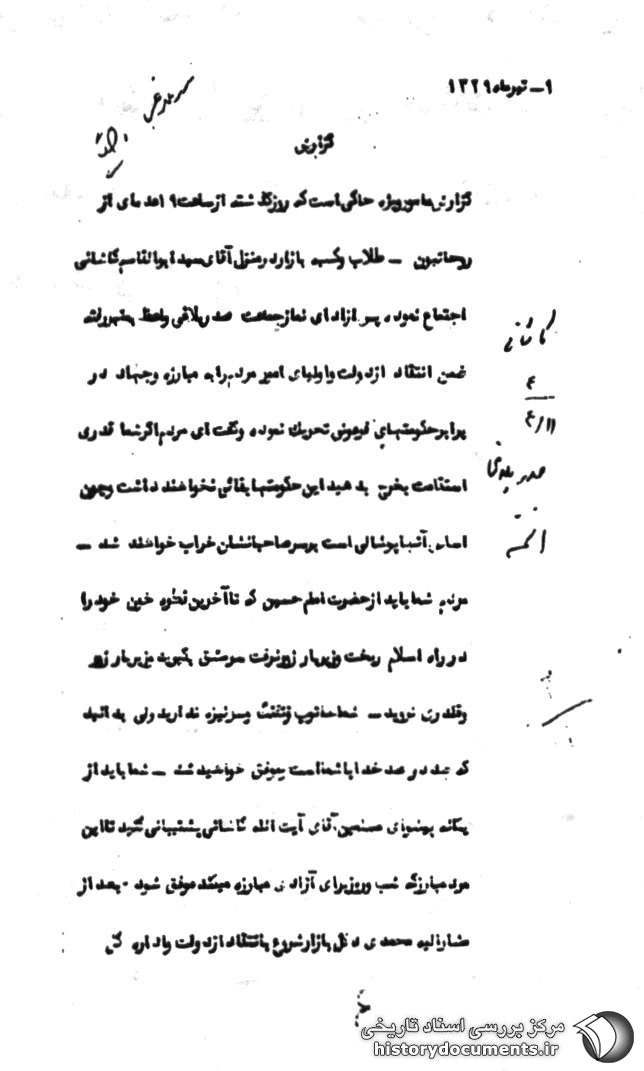 ۹ـ تیرماه ۱۳۲۹
گزارش
گزارش مامور ویژه حاکی است که روز گذشته از ساعت ۱۹ عده ای از
روحانیون ـ طلاب وکسبه بازار در منزل آقای سید ابوالقاسم کاشانی
اجتماع نموده پس از ادای نماز جماعت صدر بلاغی واعظ
ضمن انتقاد از دولت و اولیای امور مردم را به مبارزه وجهاد در
برابر حکومتهای تحریک نموده وگفت ای مردم اگر شما قدری
استقامت بخرج بدهید این حکومتها بقائی نخواهند داشت وچون
اساس آنها پوشالی است برسر صاحبانشان خراب خواهند شد ـ
مردم شما باید از حضرت امام حسین که تا آخرین قطره خون خود را
در راه اسلام ریخت وزیر بار زور نرفت سرمشق بگیرید وزیر بار زور
وقلدری نروید ـ شما توپ وتفنگ وسرنیزه ندارید ولی بدانید
که صد در صد خدا با شماست موفق خواهید شد ـ شما باید از
یگانه پیشوای آقای آیت الله کاشانی پشتیبانی کنید تا این
مرد مبارز که شب وروز برای آزادی مبارزه میکند موفق شود ۰ بعد از
مشارالیه محمدی دلال بازار شروع بانتقاد از دولت واداره کل
کاشانی
۴
۴/۱۱
صدر بلاغی
مرکز بررسی اسناد تاریخی
historydocuments.ir